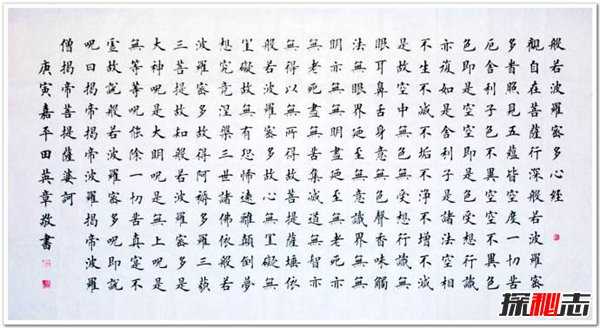 般若波羅密多心經
觀自在菩薩行深般若波羅密
多旹照見五蘊皆空度一切苦
厄舍利子色不異空空不異色
色即是空空即是色受想行識
亦復如是舍利子是諸法空相
不生不滅不垢不淨不增不減
是故空中無色無受想行識無
眼耳鼻舌身意無色聲香味觸
法無眼界乃至無意識界無無
明亦無無明盡乃至無老死亦
無老死盡無苦集滅道無智亦
無得以無所得故菩提薩埵依
般若波羅密多故心無罣礙無
罣礙故無有恐怖遠離顛倒夢
想究竟涅槃三世諸佛依般若
波羅密多故得阿耨多羅三藐
三菩提故知般若波羅密多是
大神呪是大明呪是無上呪是
無等等呪能除一切苦真實不
虛故說般若波羅密多呪即說
呪曰揭帝揭帝波羅揭帝波羅
僧揭帝菩提薩婆訶
庚寅嘉平田英章敬書
探秘志